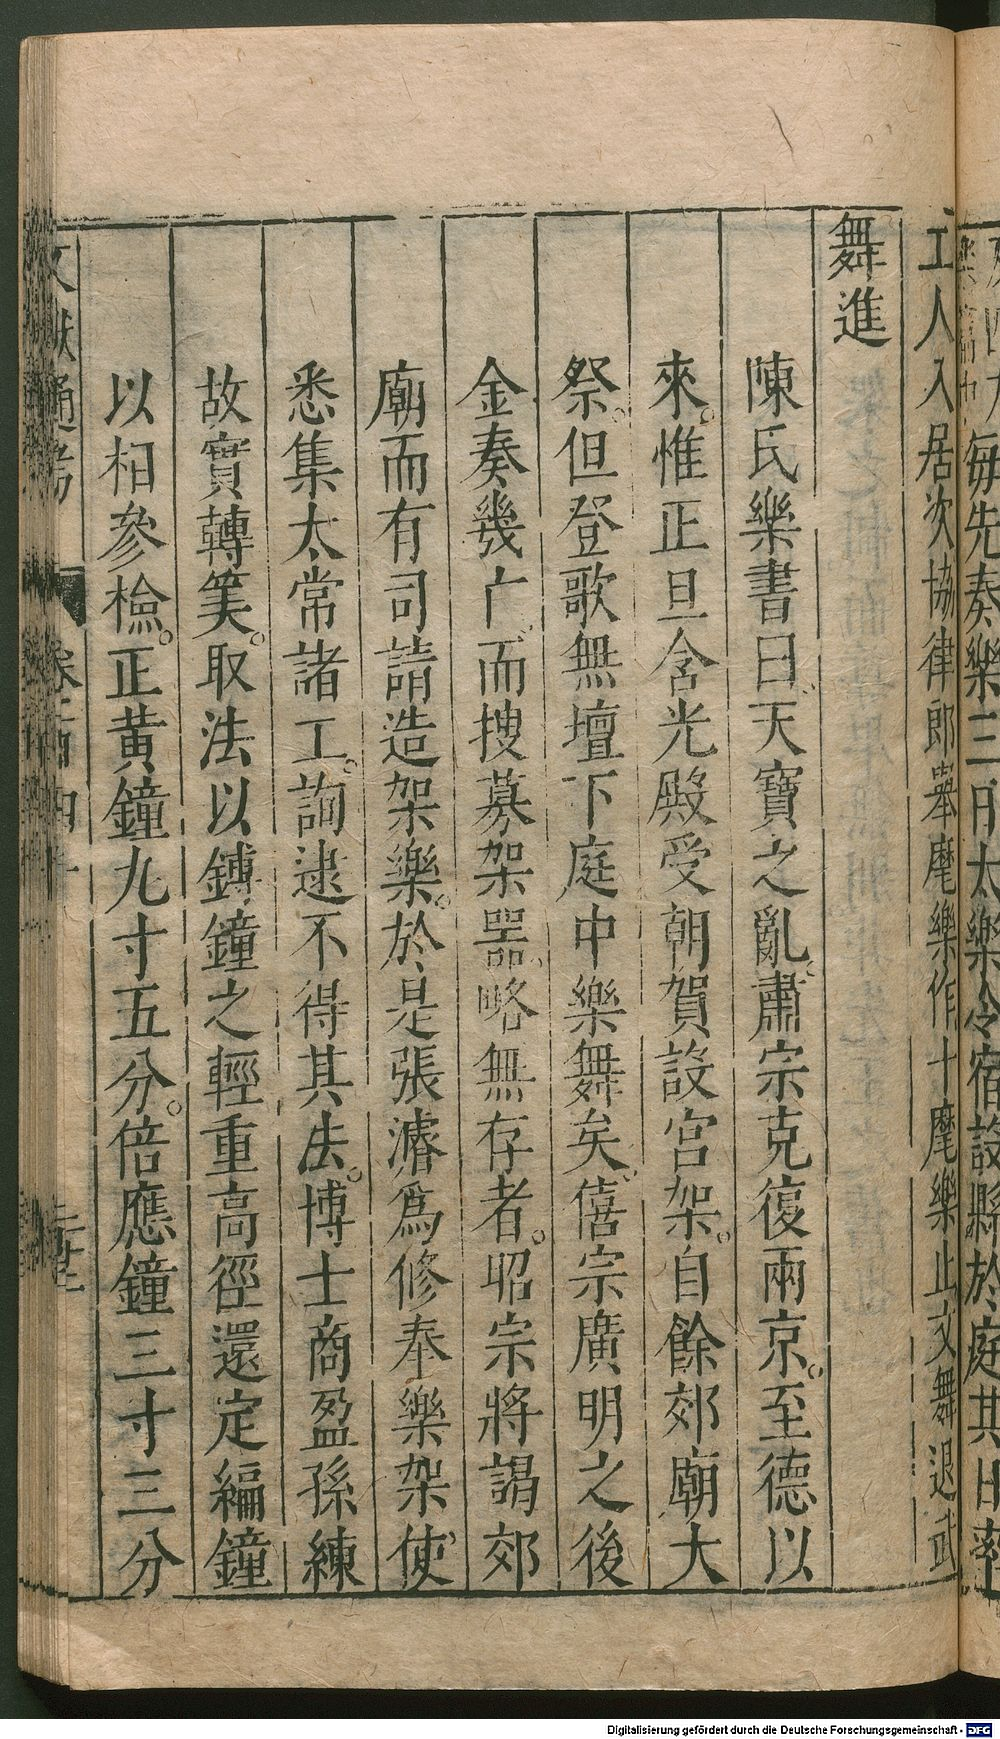 每先奏樂三日太樂令宿設縣於庭其日率
工人入居次協律郎舉麾樂作仆麾樂止文舞退武
舞進
陳氏樂書曰天寶之亂肅宗克復兩京。至德以
來。惟正旦含光殿受朝賀設宮架。自餘郊廟大
祭。但登歌無壇下庭中樂舞矣、僖宗廣明之後
金奏幾亡、而搜募架器。略無存者。昭宗將謁郊
廟而有司請造架樂。於是張濬爲修奉樂架使、
悉集太常諸工。詢逮不得其法。博士商盈孫練
故實轉筭。取法以鎛鐘之輕重高徑還定編鐘
以相參檢。正黃鐘九寸五分。倍應鐘三寸三分
文獻通考
Digitalisierung gefördert durch die Deutsche Forschungsgemeinschaft - DFG